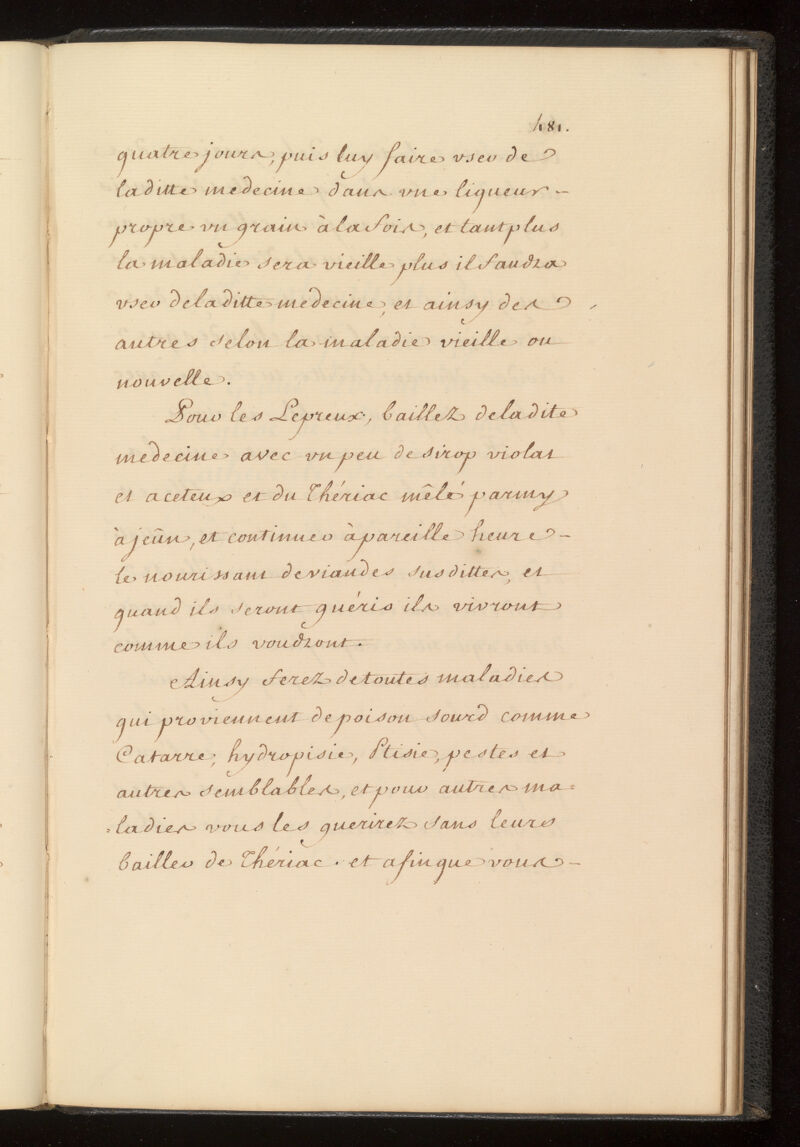 481.
quatre jours, puis luy faire vser de
laditte medecine dans vne liqueur -
propre vn grain à la fois, et tant plus
la maladie sera vieille plus il faudra
vser de laditte medecine, et ainsy des
autres selon la maladie vieille ou
nouvelle.
Pour les Lepreux, baillez de la dite
medecine avec vn peu de sirop violat
et aceteux et du Thériac mêlé parmy
à jeûn, et continuer à pareille heure -
le nourissant de viandes susdittes, et
quand ils seront guéris ils vivront
comme ils voudront.
Ainsy ferez de toutes maladies
qui proviennent de poison sourd comme
Catarre, hydropisie, Ptisie, pestes et
autres semblables, et pour autres ma=
=ladies vous les guerirez sans leurs
bailler de Thériac. et afin que vous -